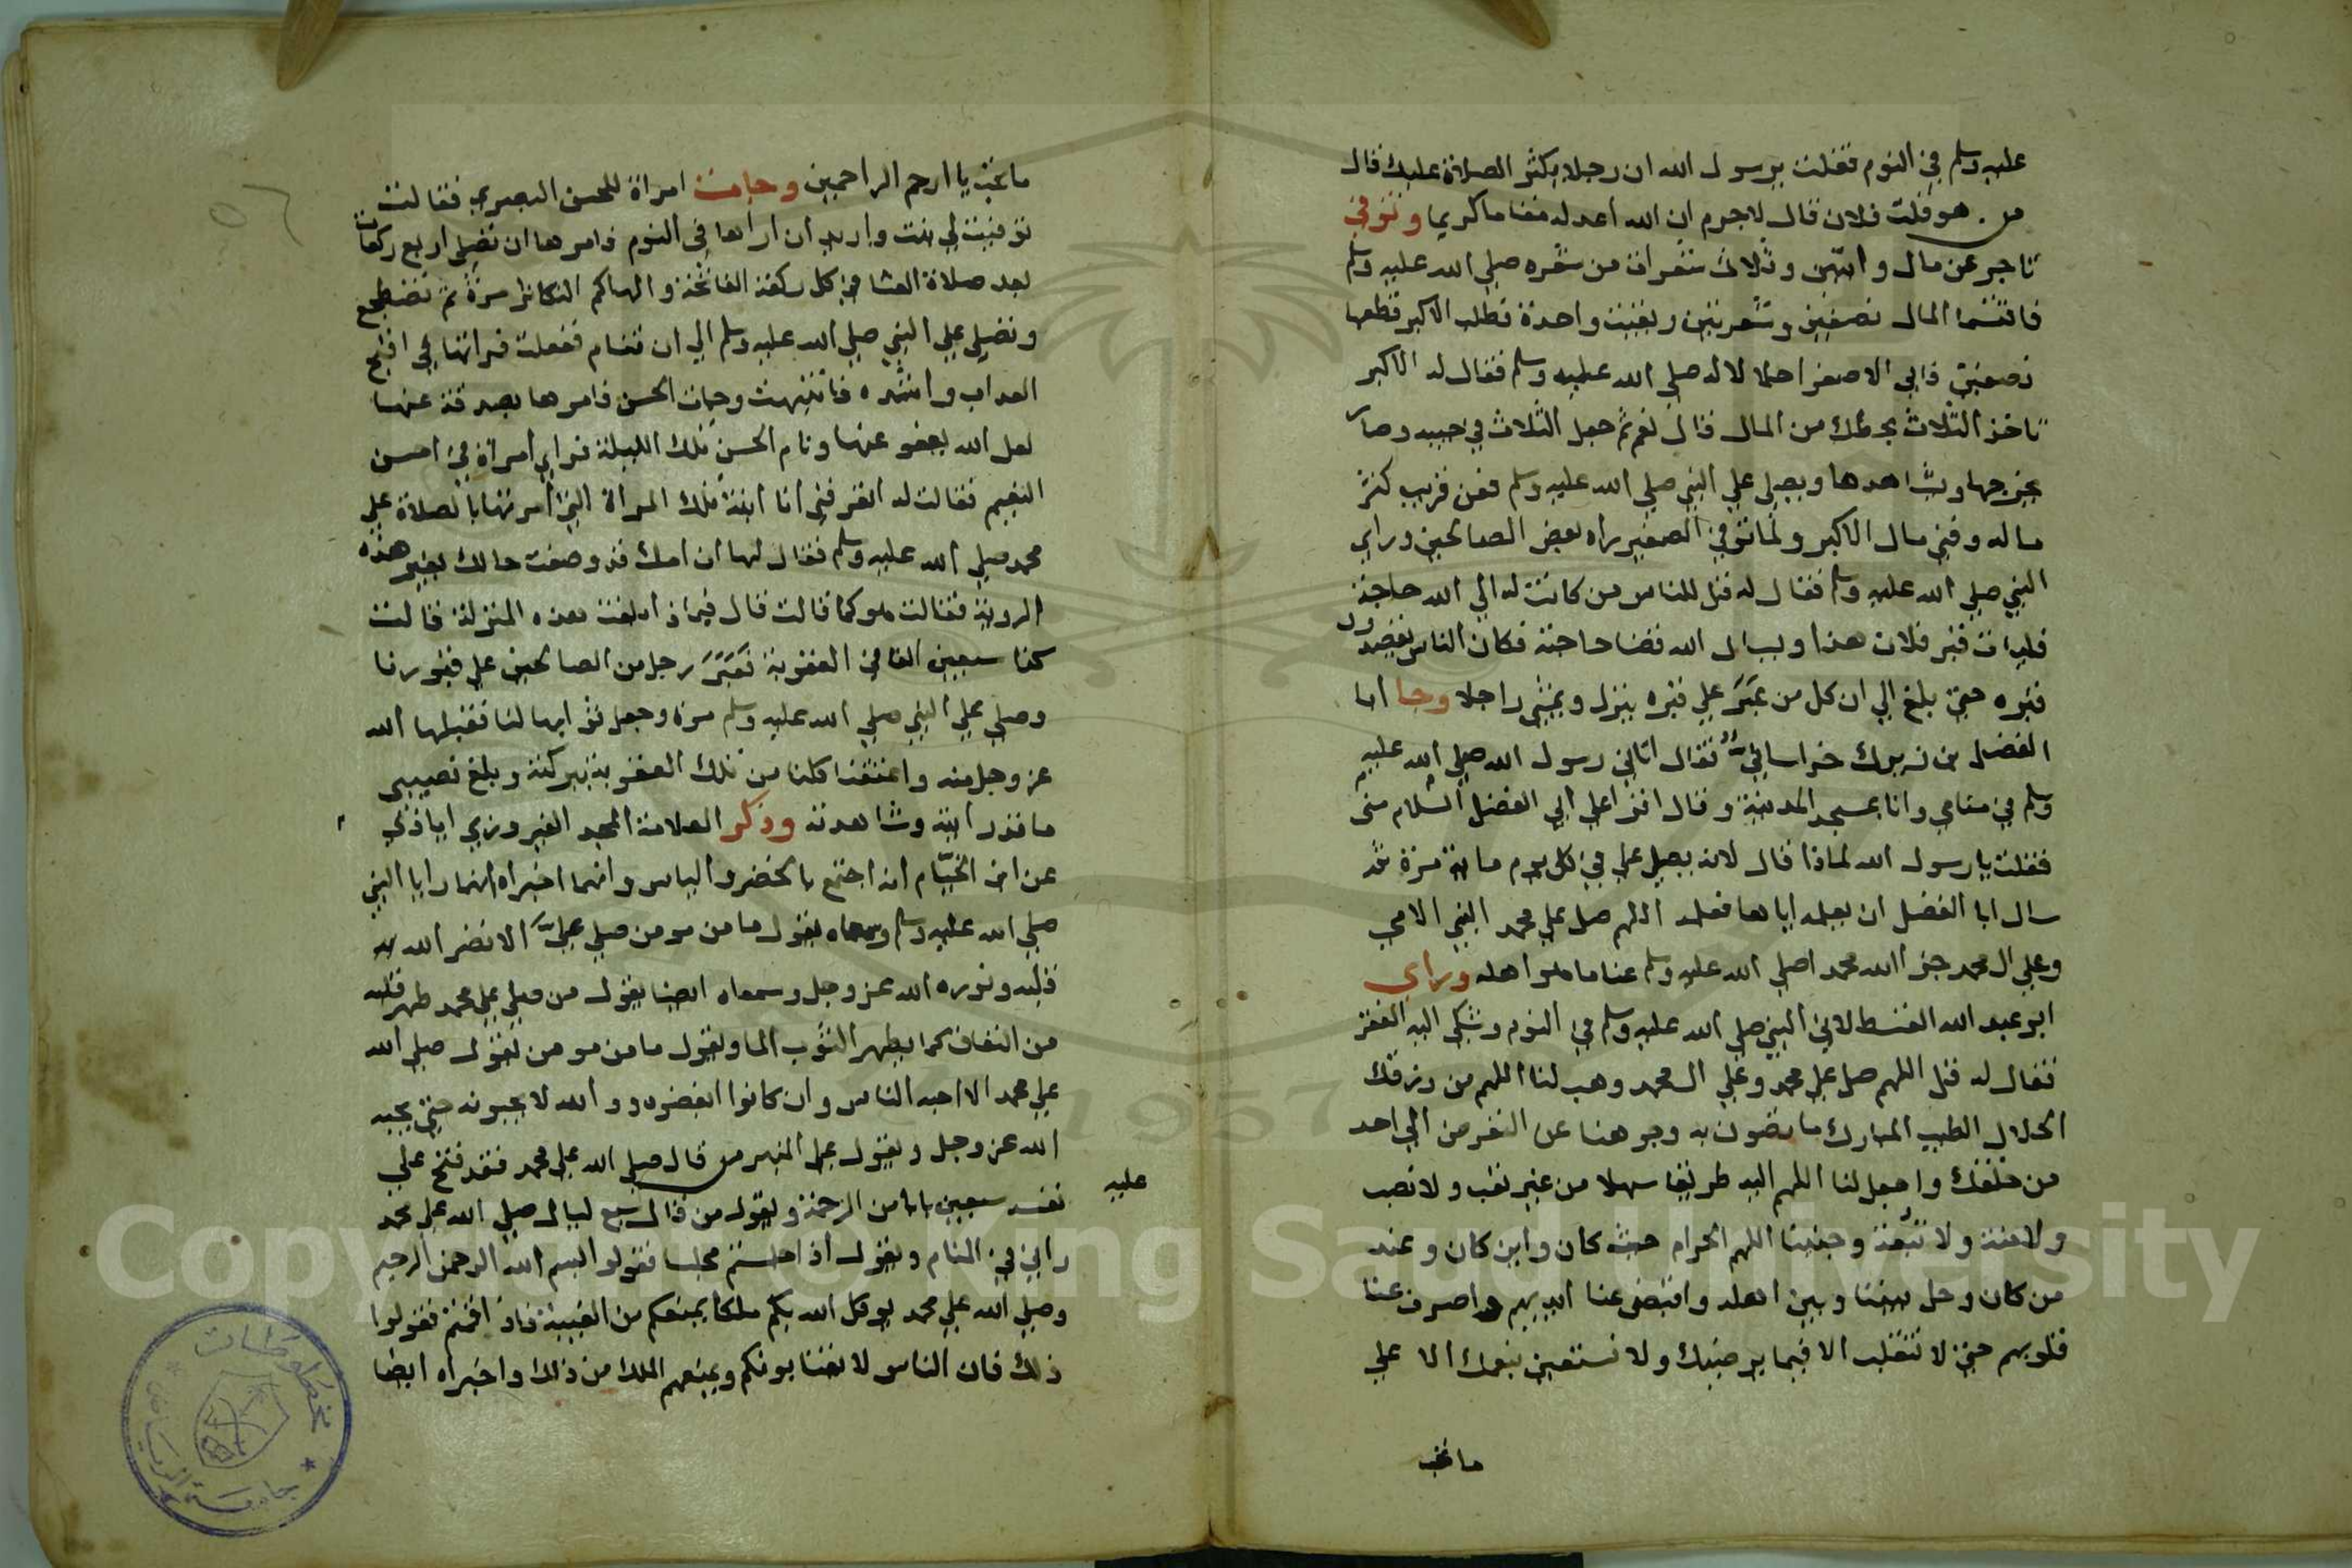 عليه وسلم في النوم فقلت يرسول الله ان رجلا يكثر الصلاة عليك قال
من هو قلت فلان قال لاجرم ان الله اعد له مقاما كريما وتوفي
تاجر عن مال وابنين وثلاث شعرات من شعره صلي الله عليه وسلم
فاقتسما المال نصفين وشعرتين وبقيت واحدة فطلب الاكبر قطعها
نصفين فابي الاصغر اجلالا له صلي الله عليه وسلم فقال له الاكبر
تاخذ الثلاث بحظك من المال قال نعم ثم جعل الثلاث في جيبه وصار
يخرجها ويشاهدها ويصلي علي النبي صلي الله عليه وسلم فعن قريب كثر
ماله وفني مال الاكبر ولما توفي الصغير راه بعض الصالحين وراي
النبي صلي الله عليه وسلم فقال له قل للناس من كانت له الي الله حاجة
فليات قبر فلان هذا ويسال الله قضا حاجته فكان الناس يقصدون
قبره حتي بلغ الي ان كل من عبر علي قبره ينزل ويمشي راجلا وجا ابا
الفضل بن زيرك خراساني فقال اتاني رسول الله صلي الله عليه
وسلم في منامي وانا بمسجد المدينة وقال اقرا علي ابي الفضل السلام مني
فقلت يا رسول الله لماذا قال لانه يصلي علي في كل يوم ماية مرة ثم
سال ابا الفضل ان يعلمه اياها فعلمه اللهم صل علي محمد النبي الامي
وعلي ال محمد جزا الله محمدا صلي الله عليه وسلم عنا ما هو اهله وراي
ابو عبد الله القسطلاني النبي صلي الله عليه وسلم في النوم وشكي اليه الفقر
فقال له قل اللهم صل علي محمد وعلي ال محمد وهب لنا اللهم من رزقك
الحلال الطيب المبارك ما تصون به وجوهنا عن التعرض الي احد
من خلقك واجعل لنا اللهم اليه طريقا سهلا من غير تعب ولا نصب
ولا منة ولا تبعة وجنبنا اللهم الحرام حيث كان واين كان وعند
من كان وحل بيننا وبين اهله واقبض عنا ايديهم واصرف عنا
قلوبهم حتي لا تتقلب الا فيما يرضيك ولا نستعين بنعمك الا علي
ما تحب
ما تحب يا ارحم الراحمين وجات امراة للحسن البصري فقالت
توفيت لي بنت واريد ان اراها في النوم فامرها ان تصلي اربع ركعات
بعد صلاة العشا في كل ركعة الفاتحة والهاكم التكاثر مرة ثم تضطجع
وتصلي علي النبي صلي الله عليه وسلم الي ان تنام ففعلت فراتها في اقبح
العداب واشده فانتبهت وجات الحسن فامرها بصدقة عنها
لعل الله يعفو عنها ونام الحسن تلك الليلة فراي امراة في احسن
النعيم فقالت له اتعرفني انا ابنة تلك المراة التي امرتها بالصلاة علي
محمد صلي الله عليه وسلم فقال لها ان امك قد وصفت حالك بغير هذه
الروية فقالت هو كما قالت قال فبماذا بلغت هذه المنزلة قالت
كنا سبعين الفا في العقوبة فعبر رجل من الصالحين علي قبورنا
وصلي علي النبي صلي الله عليه وسلم مرة وجعل ثوابها لنا فقبلها الله
عز وجل منه واعتقنا كلنا من تلك العقوبة ببركته وبلغ نصيبي
ما قد رايته وشاهدته وذكر العلامة المجد الفيروزي اباذي
عن ابن الخيام انه اجتمع بالخضر والياس وانهما اخبراه انهما رايا النبي
صلي الله عليه وسلم وسمعاه يقول ما من مومن صلي علي الا نضر الله به
قلبه ونوره الله عز وجل وسمعاه ايضا يقول من صلي علي محمد طهر قلبه
من النفاق كما يطهر الثوب الما ويقول ما من مومن يقول صلي الله
علي محمد الا احبه الناس وان كانوا ابغضوه ووالله لا يحبونه حتي يحبه
الله عز وجل ويقول علي المنبر من قال صلي الله علي محمد فقد فتح علي
نفسه سبعين بابا من الرحمة ويقول من قال سبع ليال صلي الله علي محمد
عليه
راني في المنام ويقول اذا جلستم مجلسا فقولوا بسم الله الرحمن الرحيم
وصلي الله علي محمد يوكل الله بكم ملكا يمنعكم من الغيبة فاذا قمتم فقولوا
ذلك فان الناس لا يغتابونكم ويمنعهم الملك من ذلك واخبراه ايضا
٥٦
مخطوطات
جامعة الرياض
Copyright © King Saud University
1957